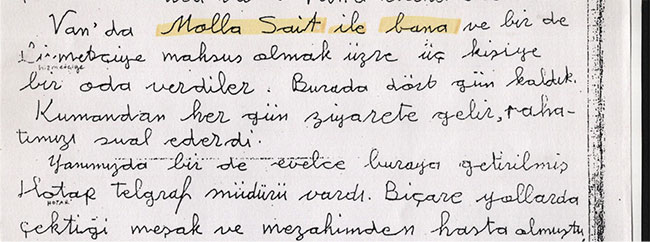 Van'da Molla Sait ile bana ve bir de
hizmetçiye mahsus olmak üzre üç kişiye
hizmetçiye
bir oda verdiler. Burada dört gün kaldık.
Kumandan her gün ziyarete gelir, raha-
tımızı sual ederdi.
Yanımızda bir de evelce buraya getirilmiş
Hotap telgraf müdürü vardı. Biçare yollarda
HOTAP
çektiği meşak ve mezahimden hasta olmuştu